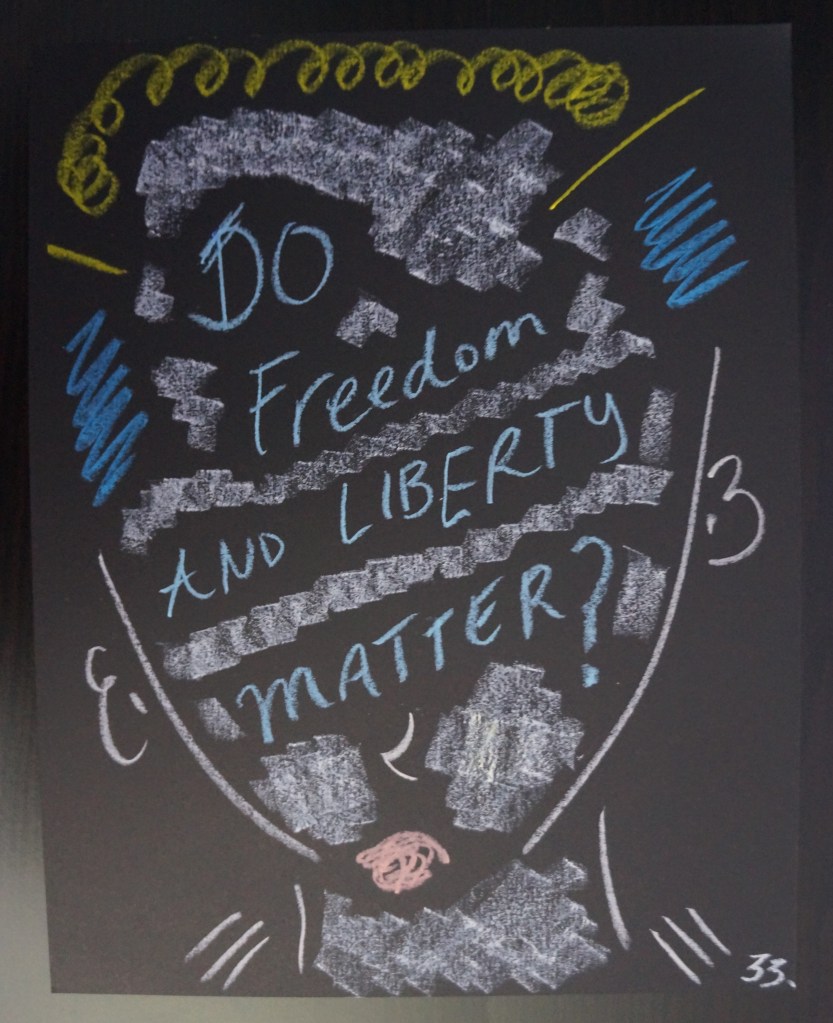 DO
Freedom
AND LIBERTY
MATTER?
33.